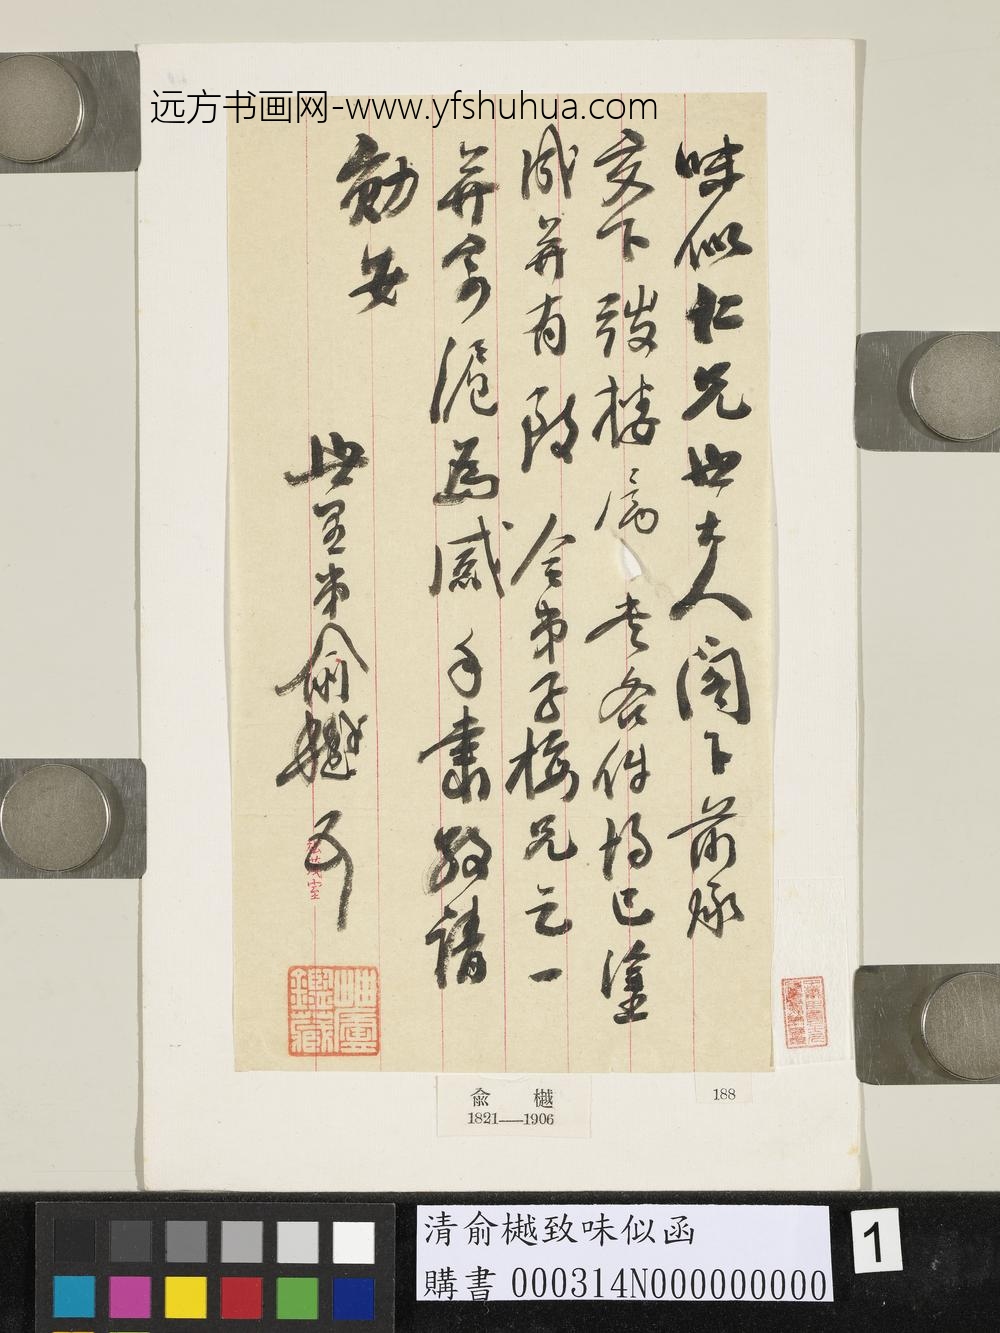 远方书画网-www.yfshuhua.com
味似仁兄世大人阁下前承
交下 各件均已塗
成并有 令弟子梅兄之一
并寄滬為感手肅敬請
勛安
世愚弟俞樾
室
鑑藏
俞樾
1821—1906
188
清俞樾致味似函
購書 000314N000000000
1